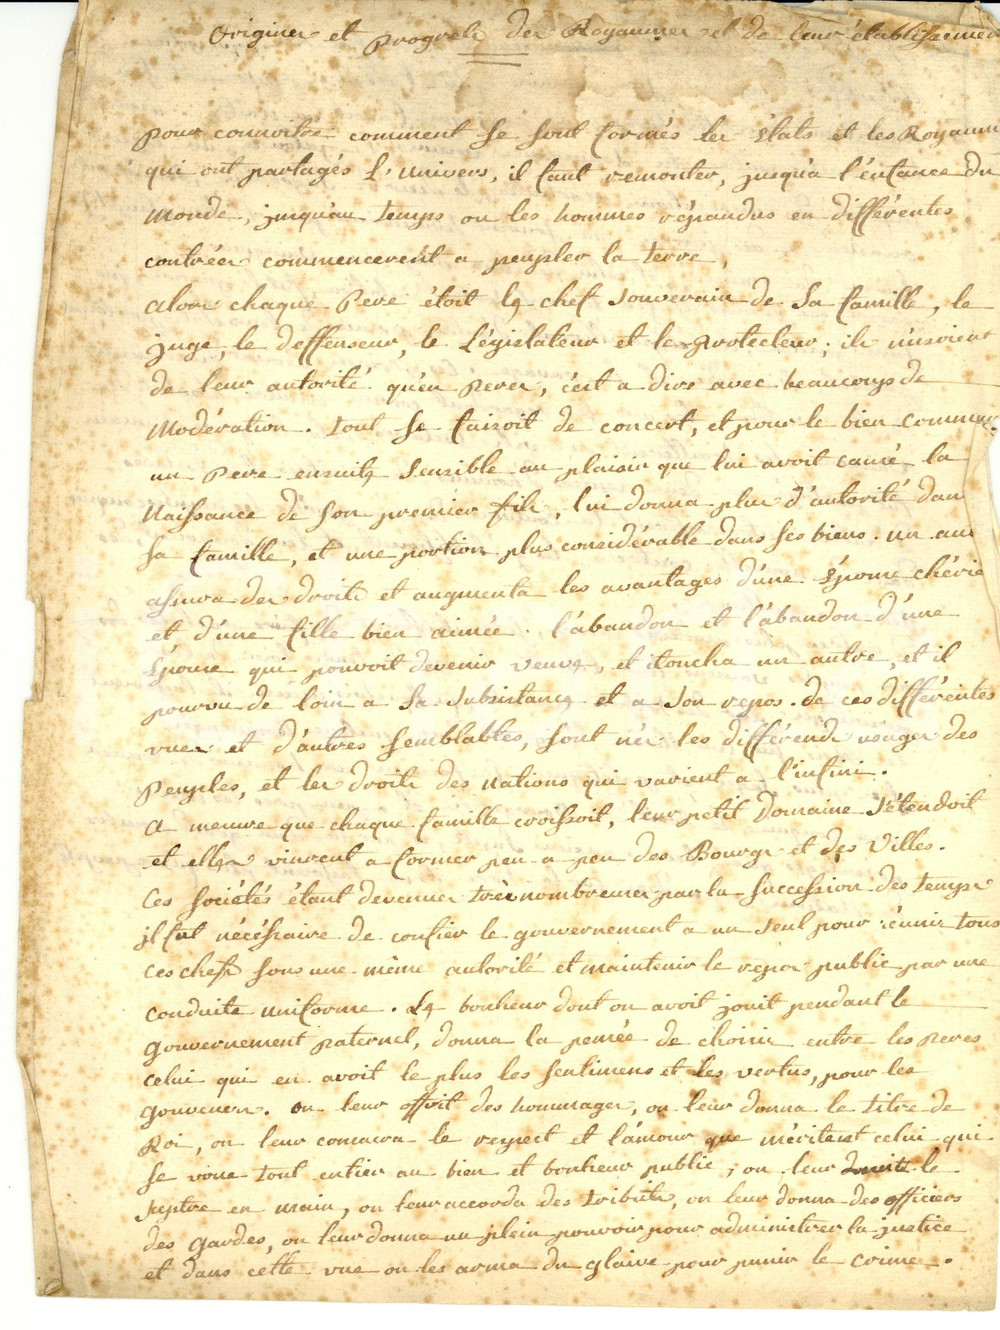 Origines et Progrets des Royaumes et de leur établissemen
pour connoitre comment se sont formés les états et les Royaum
qui ont partagés l'univers, il faut remonter, jusqu'a l'enfance du
Monde, jusqu'au temps ou les hommes répandus en différentes
contrées commencerent a peupler la terre,
alors chaque Pere étoit le chef souverain de sa famille, le
juge, le deffenseur, le Législateur et le Protecteur; ils n'usoient
de leur autorité qu'en Peres, c'est a dire avec beaucoup de
Modération. tout se faisoit de concert, et pour le bien commun.
un Pere ensuite sensible au plaisir que lui avoit causé la
Naissance de son premier fils, lui donna plus d'autorité dans
sa famille, et une portion plus considérable dans ses biens. un au
assura des droits et augmenta les avantages d'une Épouse chérie
et d'une fille bien aimée. l'abandon et l'abandon d'une
Épouse qui pouvoit devenir veuve, et toucha un autre, et il
pourvu de loin a sa subsistance et a son repos. de ces différentes
vues et d'autres semblables, sont nés les différends usages des
Peuples, et les droits des Nations qui varient a l'infini.
A mesure que chaque famille croissoit, leur petit Domaine s'étendoit
et elles vinrent a former peu a peu des Bourgs et des Villes.
Ces sociétés étant devenues très nombreuses par la succession des temps
il fut nécéssaire de confier le gouvernement a un seul pour réunir tous
ces chefs sous une même autorité et maintenir le repos public par une
conduite uniforme. Le bonheur dont on avoit jouit pendant le
gouvernement paternel, donna la pensée de choisir entre les peres
celui qui en avoit le plus les sentimens et les vertus, pour les
gouverner. on leur offrit des hommages, on leur donna le titre de
Roi, on leur consacra le respect et l'amour que méritent celui qui
se voue tout entier au bien et bonheur public; on leur le
sceptre en main, on leur accorda des tributs, on leur donna des officiers
des gardes, on leur donna un plein pouvoir pour administrer la justice
et dans cette vue on les arma du glaive pour punir le crime.